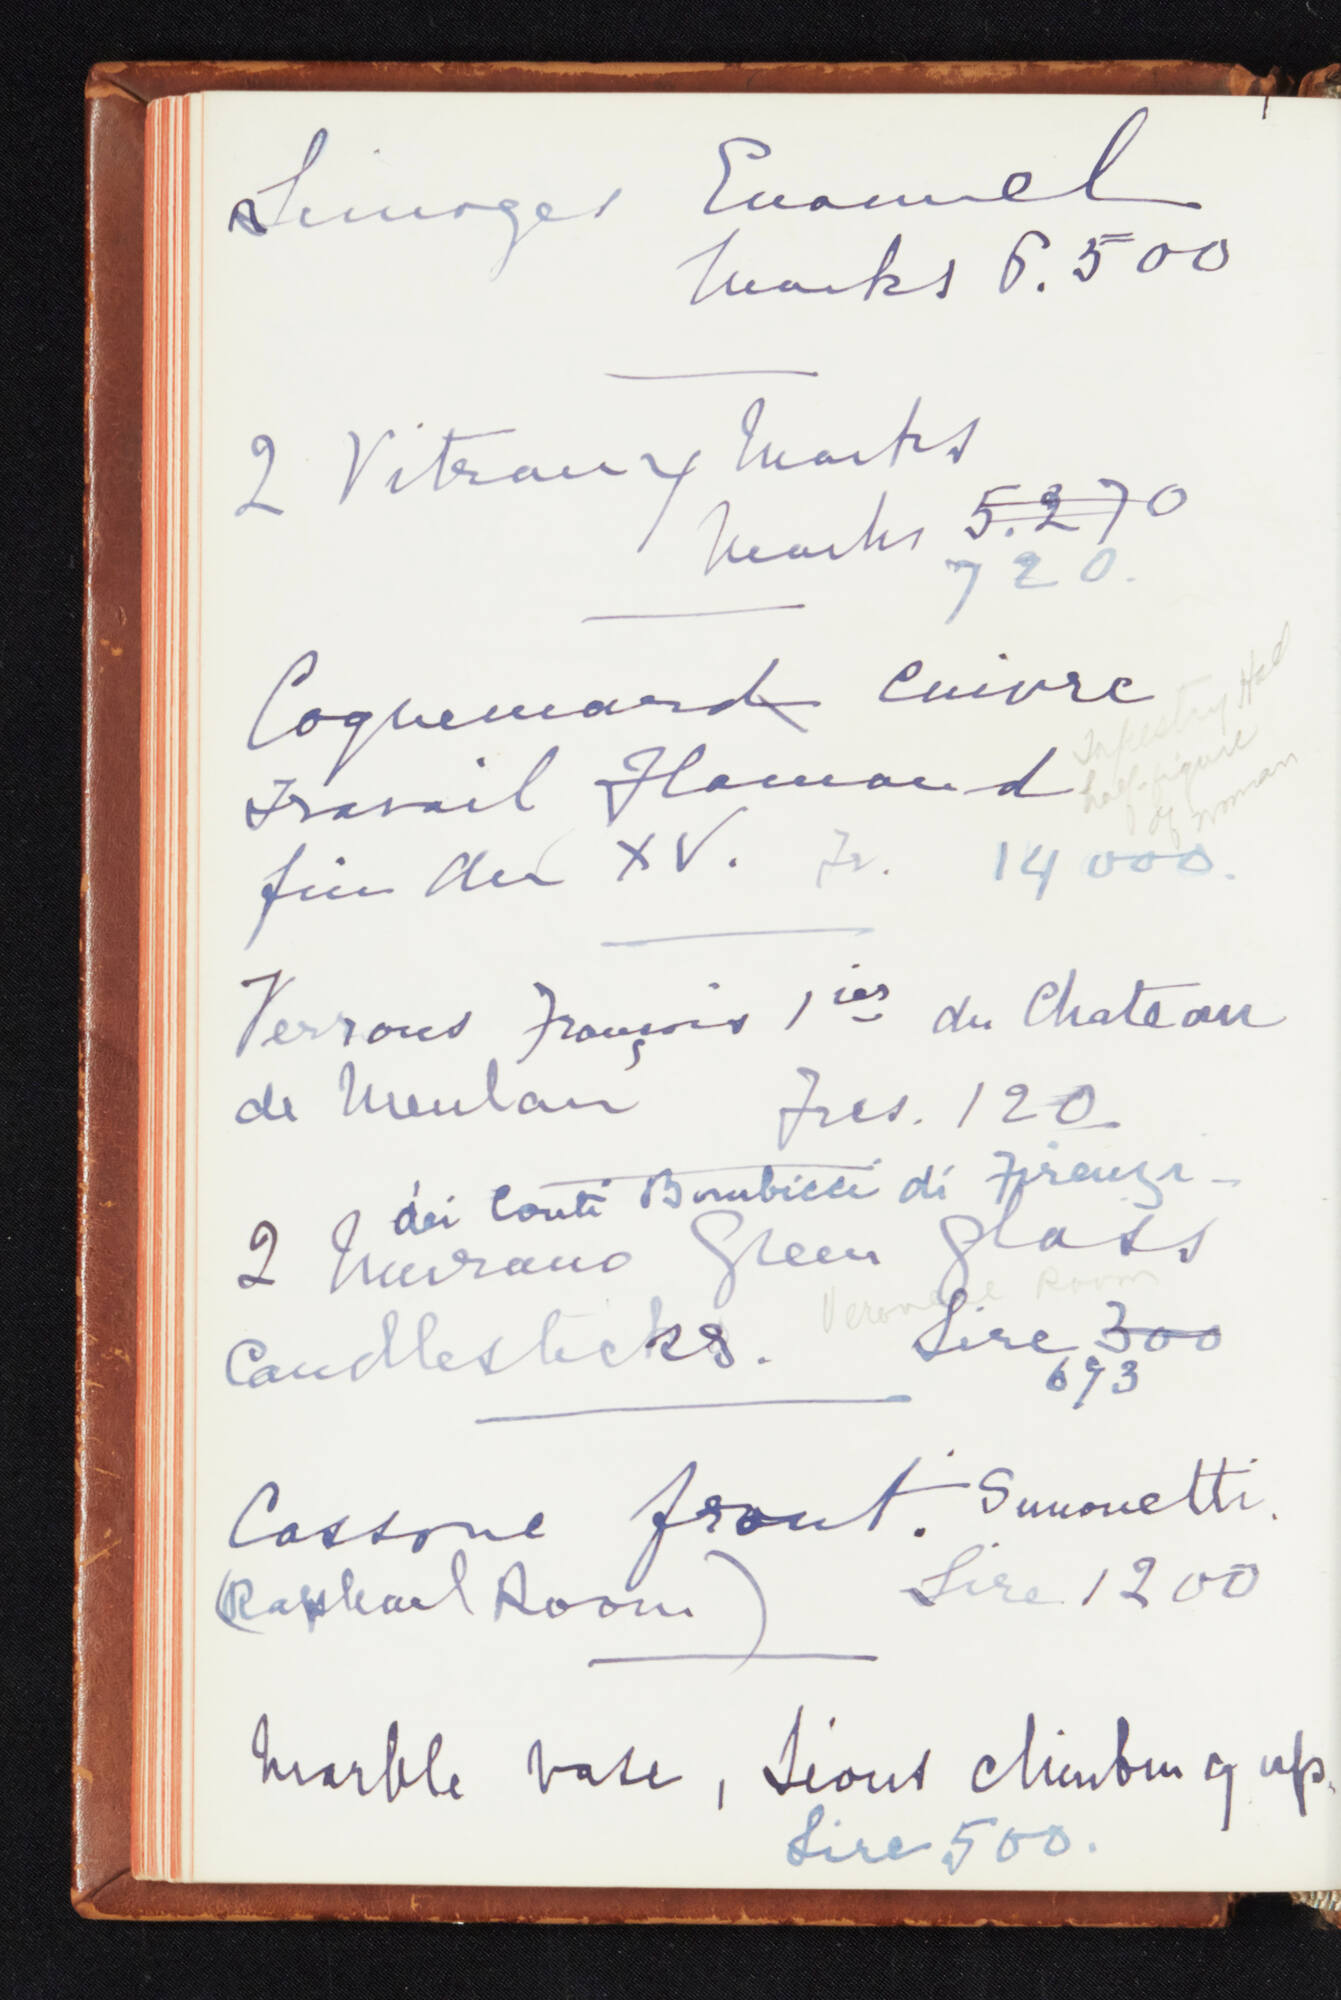 Limoges Enamel
Marks 6.500
2 Vitraux Marks
Marks 5.270
720.
Coquemard cuivre
travail Flamand
Tapestry Hall
half-figure
of woman
fin du XV. Fr. 14000.
Verrous François 1ier du Chateau
de Meulan Frcs. 120
dei Conti Bombicci di Firenze
2 Murano Green glass
Veronese Room
Candlesticks. Lire 300
693
Cassone front. Simonetti.
(Raphael Room) Lire 1200
Marble vase, Lions climbing up.
Lire 500.